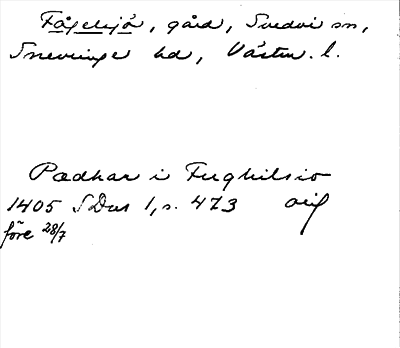 Fågelsjö, gård, Svedvi sn,
Snevringe hd, Västm. l.
Pædhar i Fughilsio
1405 SDns 1, s. 473 orig
före 28/7